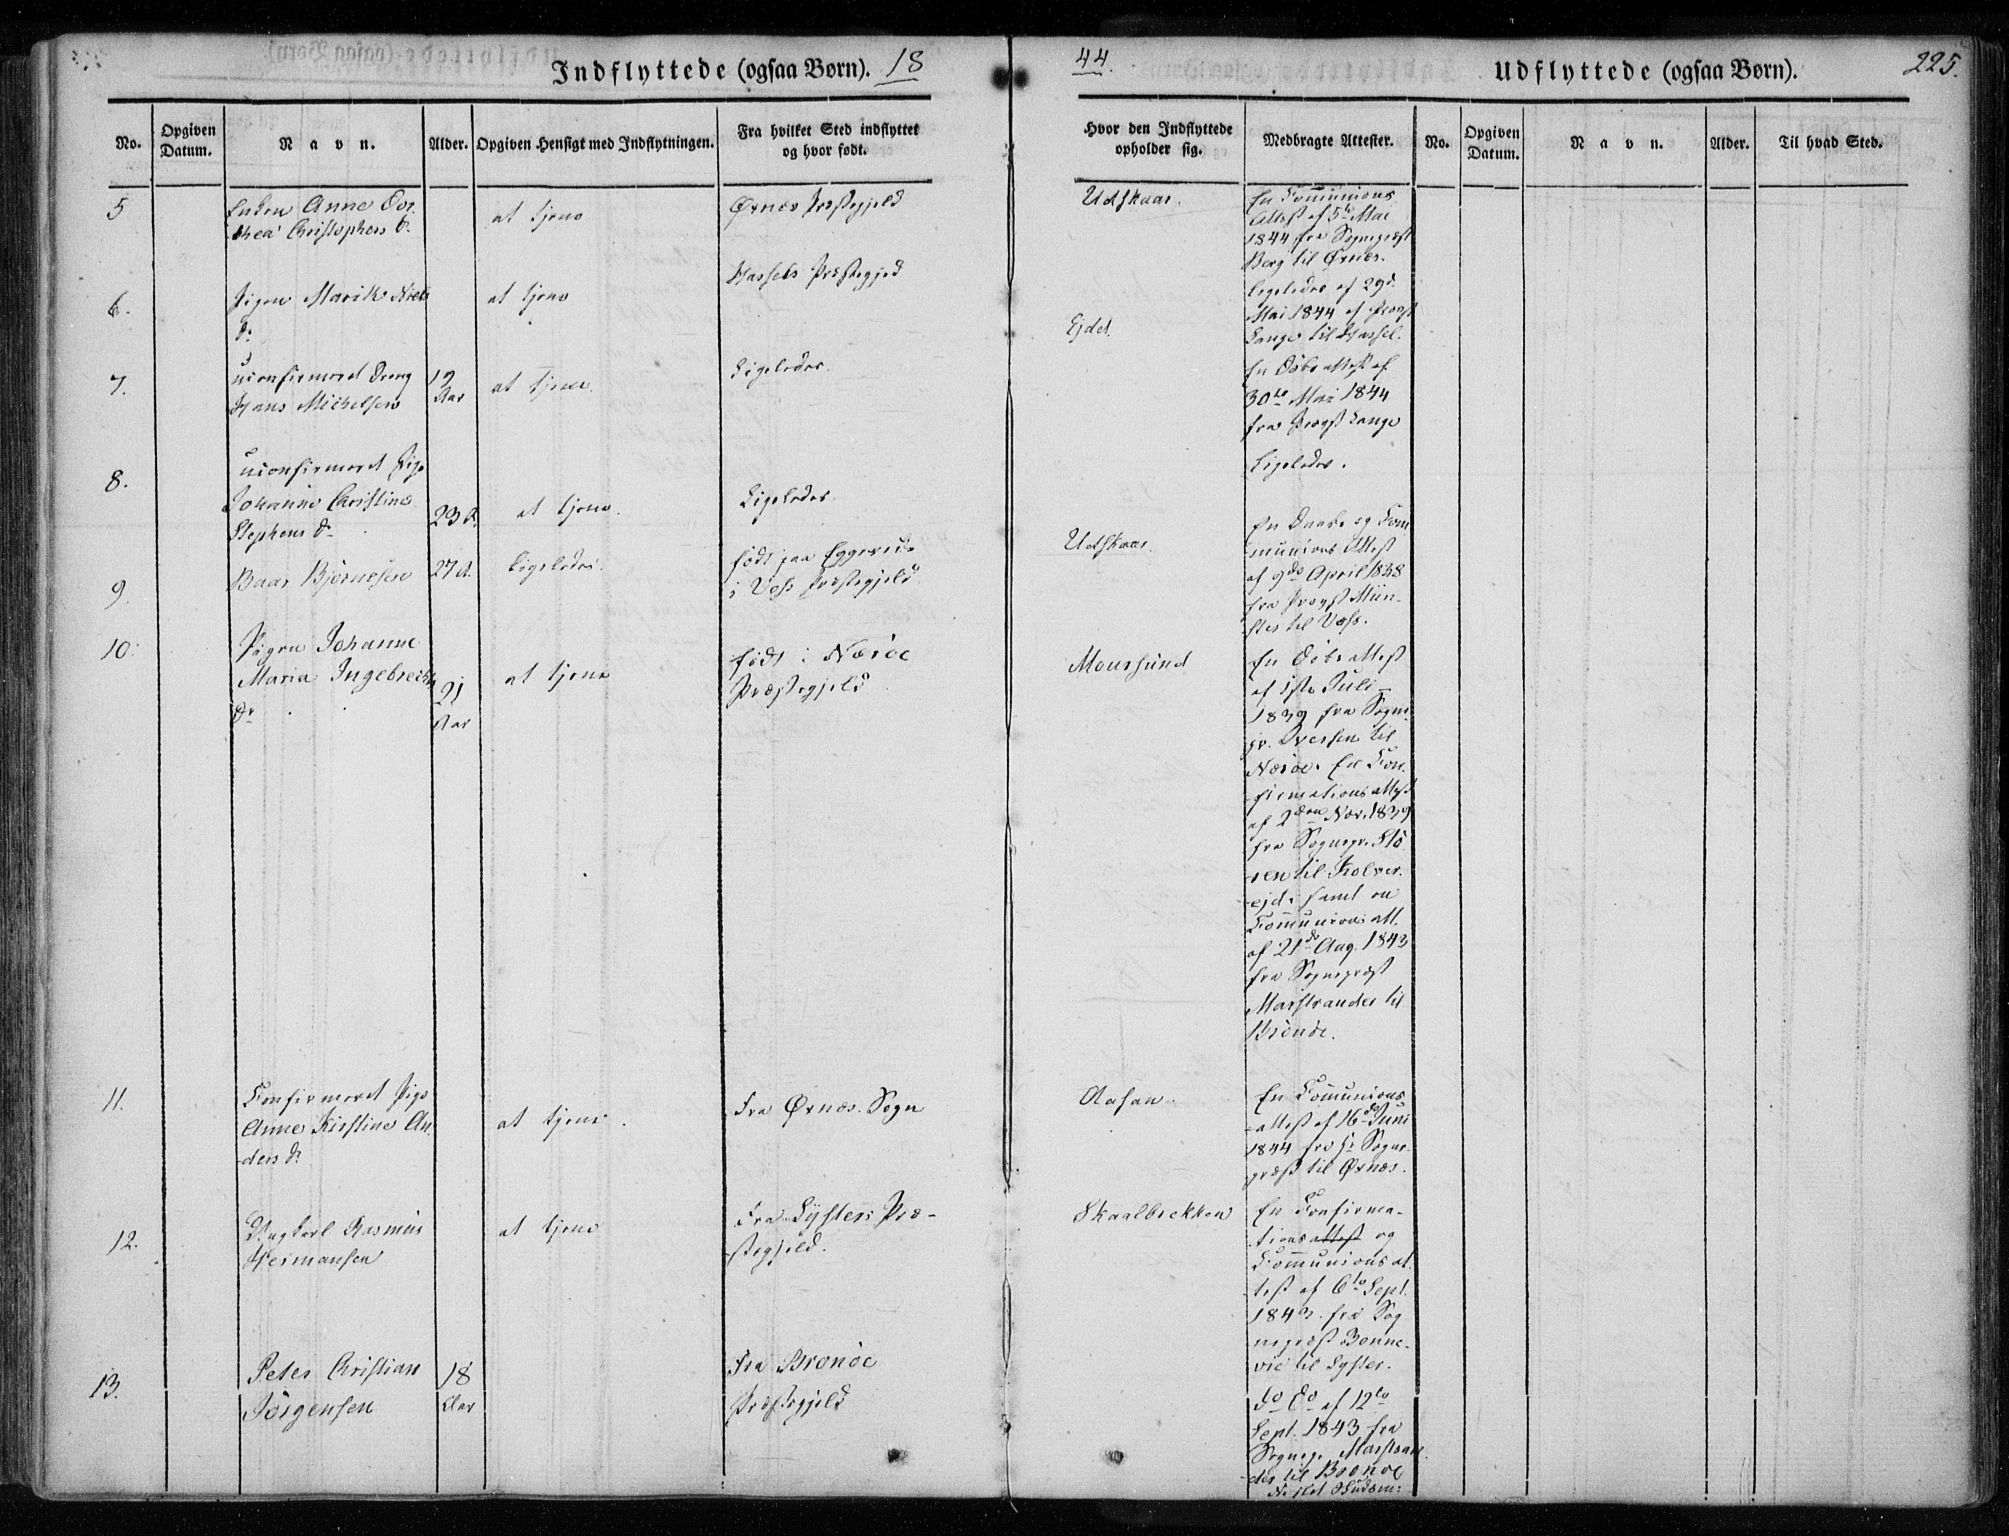 Indflyttede (ogsaa Børn). 18
44. Udflyttede (ogsaa Børn). 225.
No. Opgiven Datum. Navn. Alder. Opgiven Hensigt med Indflytningen. Fra hvilket Sted indflyttet og hvor født.
Hvor den Indflyttede opholder sig. Medbragte Attester. No. Opgiven Datum. Navn. Alder. Til hvad Sted.
5 Enken Anne Dor-
thea Christophers D.
at tjene
Ørnes Præstegjeld
Udskaar.
En Communions
Attest af 5te Mai
1844 fra Sognepræst
Berg til Ørnes.
6. Pigen Marik Niels
D:
at tjene
Hassels Præstegjed
Ejdet
Ligeledes af 29d.
Mai 1844 af Provst
Lange til Hassel.
7. uconfirmeret Dreng
Hans Michelsen
19
Aar
at tjene.
Ligeledes.
En Døbeattest af
30te Mai 1844
fra Provst Lange
8. uconfirmeret Pige
Johanne Christine
Stephens D.
23 A.
at tjene.
Ligeledes
Udskaar.
Ligeledes.
9. Baar Bjørnesen
27 A.
Ligeledes.
født paa
i Voss Præstegjeld
En Daabs og Com
munions Attest
af 9de April 1838
fra Provst Mün-
ster til Voss.
10. Pigen Johanne
Maria Ingebrechts
Dr
21
Aar
at tjene
født i Nærøe
Præstegjeld
Moursund
En Døbeattest
af 1ste Juli
1839 fra Sogne
pr. til
Nærøe. En Con-
firmationsattest
af 2den Nov. 1839
fra Sognepr. Stö
ren til Kolver-
ejd. samt en
Communions att.
af 21de Aug. 1843
fra Sognepræst
Marstrander til
Brønöe.
11. Confirmeret Pige
Anne Kirstine An-
ders D.
at tjene.
Fra Ørnæs. Sogn
Aasan.
En Communions
attest af 16de Juni
1844 fra Sogne-
præst til Ørnæs.
12. Ungkarl Rasmus
Hermansen
at tjene
Fra Lysters Præ-
stegjeld.
Skaalbrekken
En Confirma-
tionsattest og
Communions at-
test af 6te Sept.
1843. fra Sog
nepræst Bonne-
vie til Lyster.
13. Peter Christian
Jörgensen
18
Aar
Fra Brønöe
Præstegjeld
do do af 12te
Sept. 1843 fra
Sognep. Marstran
der til Brønöe